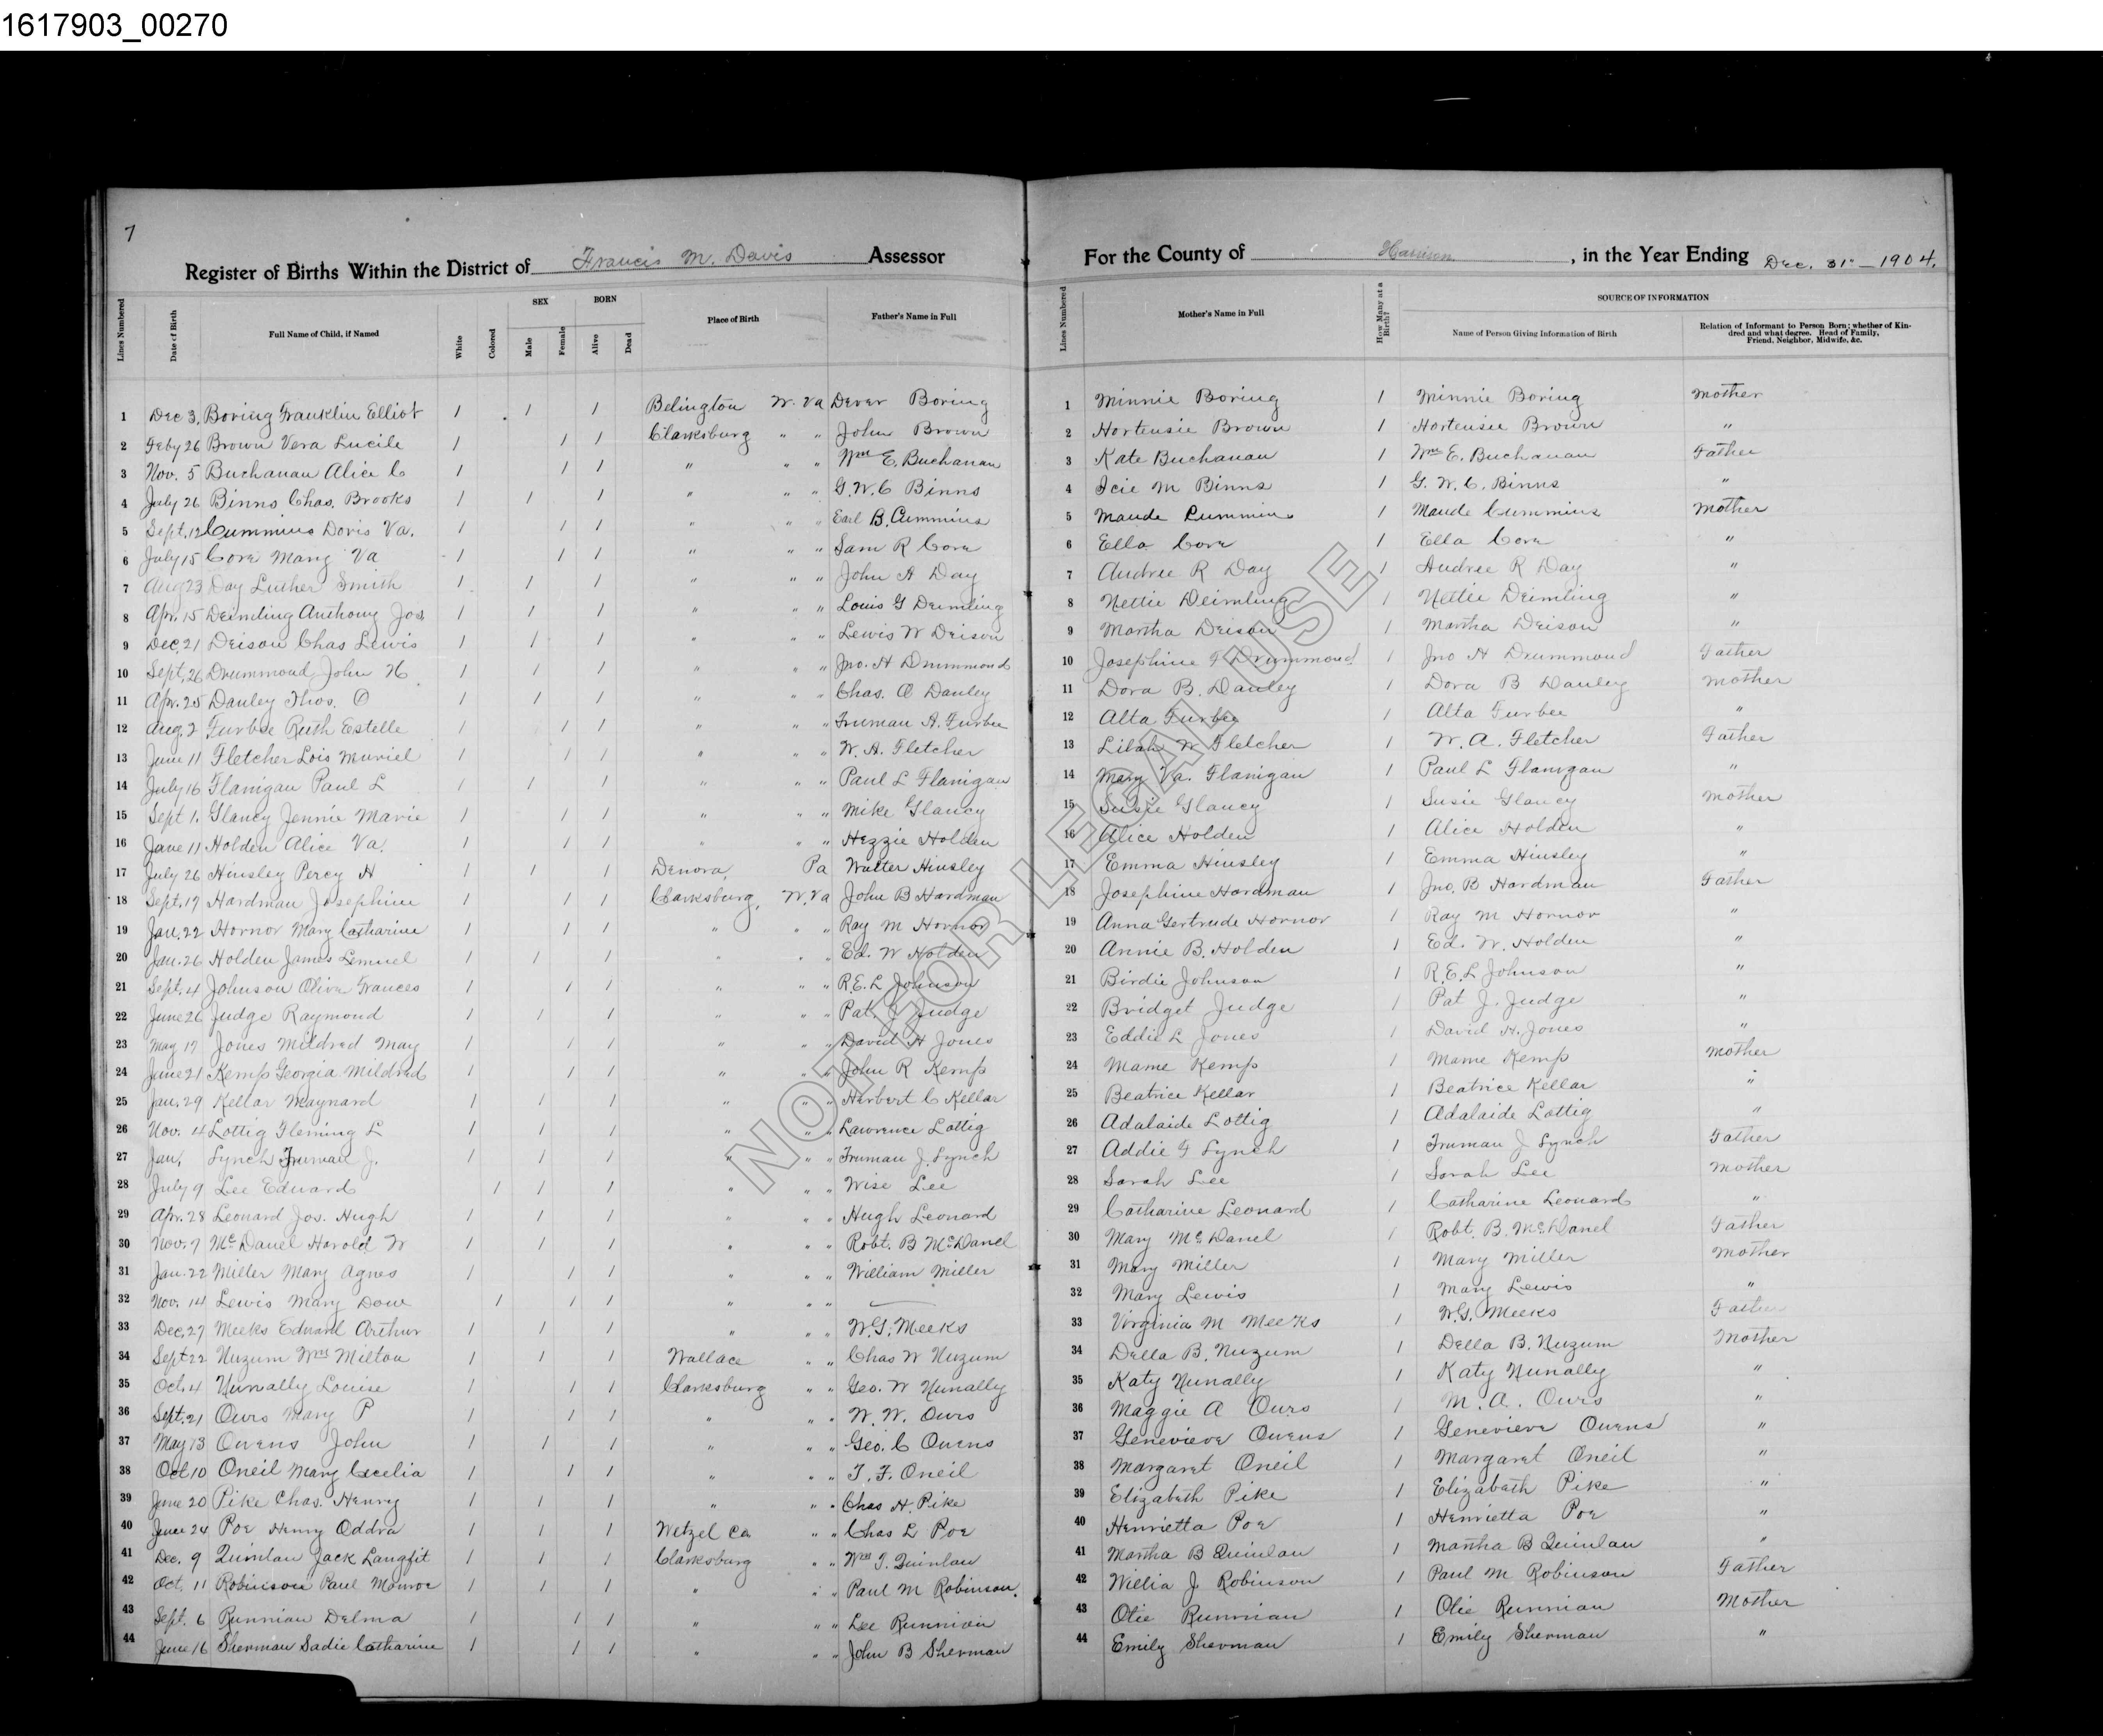 1617903_00270
7
Register of Births Within the District of Francis M. Davis Assessor
For the County of Harrison, in the Year Ending Dec. 31 - 1904.
Lines Numbered | Date of Birth | Full Name of Child, if Named | White | Colored | SEX Male | Female | BORN Alive | Dead | Place of Birth | Father's Name in Full | Lines Numbered | Mother's Name in Full | How Many at a Birth? | SOURCE OF INFORMATION Name of Person Giving Information of Birth | Relation of Informant to Person Born; whether of Kindred and what degree, Head of Family, Friend, Neighbor, Midwife, &c.
1 Dec 3, Boring Franklin Elliot 1 1 1 Belington W. Va Dever Boring 1 Minnie Boring 1 Minnie Boring Mother
2 Feby 26 Brown Vera Lucile 1 1 1 Clarksburg " " John Brown 2 Hortensie Brown 1 Hortensie Brown "
3 Nov. 5 Buchanan Alice C 1 1 1 " " " Wm E. Buchanan 3 Kate Buchanan 1 Wm E. Buchanan Father
4 July 26 Binns Chas. Brooks 1 1 1 " " " G. W. C Binns 4 Icie M Binns 1 G. W. C. Binns "
5 Sept. 12 Cummins Doris Va. 1 1 1 " " " Earl B. Cummins 5 Maude Cummins 1 Maude Cummins Mother
6 July 15 Core Mary Va 1 1 1 " " " Sam R Core 6 Ella Core 1 Ella Core "
7 Aug 23 Day Luther Smith 1 1 1 " " " John A Day 7 Audree R Day 1 Audree R Day "
8 Apr. 15 Deimling Anthony Jos 1 1 1 " " " Louis G Deimling 8 Nettie Deimling 1 Nettie Deimling "
9 Dec. 21 Deison Chas Lewis 1 1 1 " " " Lewis W Deison 9 Martha Deison 1 Martha Deison "
10 Sept. 26 Drummond John H 1 1 1 " " " Jno. H Drummond 10 Josephine F Drummond 1 Jno H Drummond Father
11 Apr. 25 Danley Thos. O 1 1 1 " " " Chas. O Danley 11 Dora B. Danley 1 Dora B Danley Mother
12 Aug. 2 Furbee Ruth Estelle 1 1 1 " " " Truman A. Furbee 12 Alta Furbee 1 Alta Furbee "
13 June 11 Fletcher Lois Muriel 1 1 1 " " " W. A. Fletcher 13 Lilah W Fletcher 1 W. A. Fletcher Father
14 July 16 Flanigan Paul L 1 1 1 " " " Paul L Flanigan 14 Mary Va. Flanigan 1 Paul L Flanigan "
15 Sept 1. Glancy Jennie Marie 1 1 1 " " " Mike Glancy 15 Susie Glancy 1 Susie Glancy Mother
16 June 11 Holden Alice Va. 1 1 1 " " " Hezzie Holden 16 Alice Holden 1 Alice Holden "
17 July 26 Hinsley Percy H 1 1 1 Denora, Pa Walter Hinsley 17 Emma Hinsley 1 Emma Hinsley "
18 Sept. 17 Hardman Josephine 1 1 1 Clarksburg, W. Va John B Hardman 18 Josephine Hardman 1 Jno. B Hardman Father
19 Jan. 22 Hornor Mary Catharine 1 1 1 " " " Ray M Hornor 19 Anna Gertrude Hornor 1 Ray M Hornor "
20 Jan. 26 Holden James Lemuel 1 1 1 " " " Ed. W Holden 20 Annie B. Holden 1 Ed. W. Holden "
21 Sept. 4 Johnson Olive Frances 1 1 1 " " " R. E. L Johnson 21 Birdie Johnson 1 R. E. L Johnson "
22 June 26 Judge Raymond 1 1 1 " " " Pat. J Judge 22 Bridget Judge 1 Pat J. Judge "
23 May 17 Jones Mildred May 1 1 1 " " " David H Jones 23 Eddie L Jones 1 David H. Jones "
24 June 21 Kemp Georgia Mildred 1 1 1 " " " John R Kemp 24 Mame Kemp 1 Mame Kemp Mother
25 Jan. 29 Kellar Maynard 1 1 1 " " " Herbert C Kellar 25 Beatrice Kellar 1 Beatrice Kellar "
26 Nov. 14 Lottig Fleming L 1 1 1 " " " Lawrence Lottig 26 Adalaide Lottig 1 Adalaide Lottig "
27 Jan. Lynch Truman J. 1 1 1 " " " Truman J. Lynch 27 Addie F Lynch 1 Truman J Lynch Father
28 July 9 Lee Edward 1 1 1 " " " Wise Lee 28 Sarah Lee 1 Sarah Lee Mother
29 Apr. 28 Leonard Jos. Hugh 1 1 1 " " " Hugh Leonard 29 Catharine Leonard 1 Catharine Leonard "
30 Nov. 7 McDanel Harold W 1 1 1 " " " Robt. B McDanel 30 Mary McDanel 1 Robt. B. McDanel Father
31 Jan. 22 Miller Mary Agnes 1 1 1 " " " William Miller 31 Mary Miller 1 Mary Miller Mother
32 Nov. 14 Lewis Mary 1 1 1 " " " — 32 Mary Lewis 1 Mary Lewis "
33 Dec. 27 Meeks Edward Arthur 1 1 1 " " " W. G. Meeks 33 Virginia M Meeks 1 W. G. Meeks Father
34 Sept 22 Nuzum Wm Milton 1 1 1 Wallace " " Chas W Nuzum 34 Della B. Nuzum 1 Della B. Nuzum Mother
35 Oct. 4 Nunally Louise 1 1 1 Clarksburg " " Geo. W Nunally 35 Katy Nunally 1 Katy Nunally "
36 Sept. 21 Ours Mary P 1 1 1 " " " W. W. Ours 36 Maggie A Ours 1 M. A. Ours "
37 May 13 Owens John 1 1 1 " " " Geo. C Owens 37 Genevieve Owens 1 Genevieve Owens "
38 Oct 10 Oneil Mary Cecelia 1 1 1 " " " T. F. Oneil 38 Margaret Oneil 1 Margaret Oneil "
39 June 20 Pike Chas. Henry 1 1 1 " " " Chas H. Pike 39 Elizabeth Pike 1 Elizabeth Pike "
40 June 24 Poe Henry Oddra 1 1 1 Wetzel Co " " Chas L Poe 40 Henrietta Poe 1 Henrietta Poe "
41 Dec. 9 Quinlan Jack Langfit 1 1 1 Clarksburg " " Wm T. Quinlan 41 Martha B Quinlan 1 Martha B Quinlan "
42 Oct. 11 Robinson Paul Monroe 1 1 1 " " " Paul M Robinson. 42 Willia J Robinson 1 Paul M Robinson Father
43 Sept. 6 Runnion Delma 1 1 1 " " " Lee Runnion 43 Olie Runnion 1 Olie Runnion Mother
44 June 16 Sherman Sadie Catharine 1 1 1 " " " John B Sherman 44 Emily Sherman 1 Emily Sherman "
NOT FOR LEGAL USE